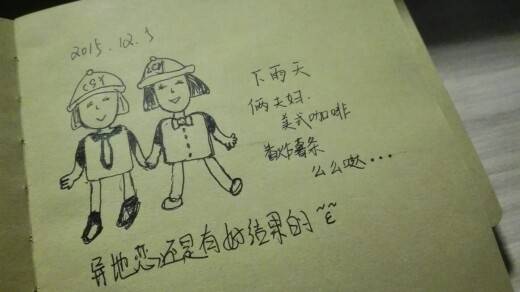 2015.12.5
CGY
CGY
下雨天
俩夫妇.
美式咖啡
炸薯条
么么哒...
异地恋还是有好结果的